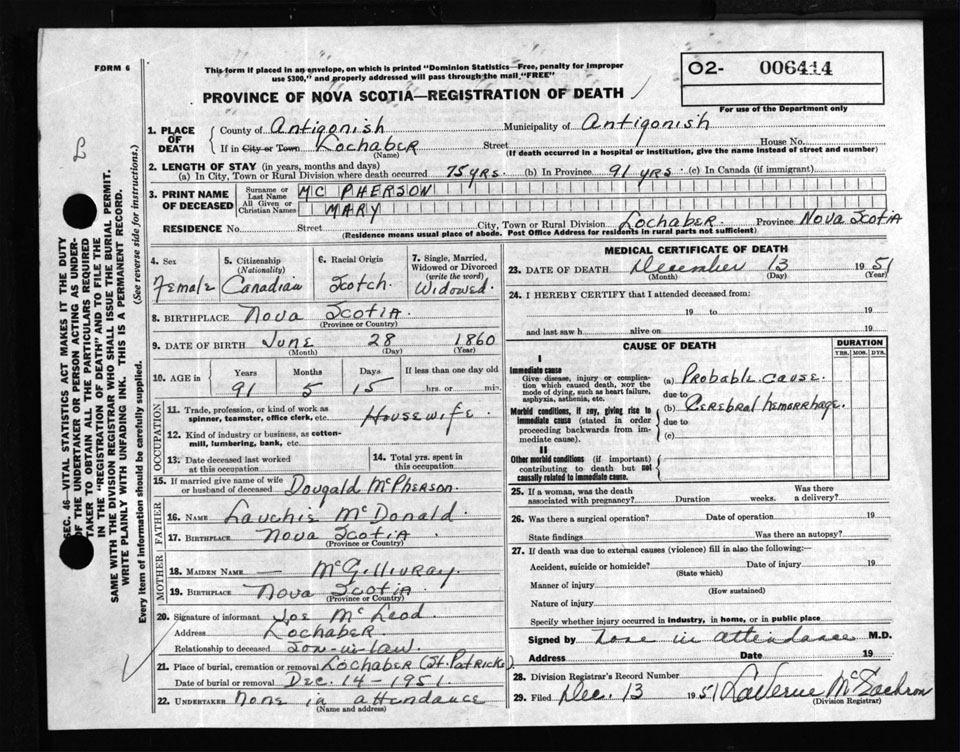 FORM 6
This form if placed in an envelope, on which is printed "Dominion Statistics—Free, penalty for improper
use $300," and properly addressed will pass through the mail "FREE"
O2- 006414
For use of the Department only
PROVINCE OF NOVA SCOTIA—REGISTRATION OF DEATH
1. PLACE OF DEATH County of Antigonish Municipality of Antigonish
If in City or Town Lochaber (Name) Street House No.
(If death occurred in a hospital or institution, give the name instead of street and number)
2. LENGTH OF STAY (in years, months and days)
(a) In City, Town or Rural Division where death occurred 75 yrs. (b) In Province 91 yrs. (c) In Canada (if immigrant)
3. PRINT NAME OF DECEASED Surname or Last Name MC PHERSON
All Given or Christian Names MARY
RESIDENCE No. Street City, Town or Rural Division Lochaber. Province Nova Scotia
(Residence means usual place of abode. Post Office Address for residents in rural parts not sufficient)
4. Sex Female
5. Citizenship (Nationality) Canadian
6. Racial Origin Scotch.
7. Single, Married, Widowed or Divorced (write the word) Widowed.
8. BIRTHPLACE Nova Scotia.
(Province or Country)
9. DATE OF BIRTH June 28 1860
(Month) (Day) (Year)
10. AGE in Years Months Days If less than one day old
91 5 15 hrs. or min.
OCCUPATION
11. Trade, profession, or kind of work as spinner, teamster, office clerk, etc. Housewife.
12. Kind of industry or business, as cotton-mill, lumbering, bank, etc.
13. Date deceased last worked at this occupation
14. Total yrs. spent in this occupation
15. If married give name of wife or husband of deceased Dougald McPherson.
FATHER
16. NAME Lauchie McDonald.
17. BIRTHPLACE Nova Scotia
(Province or Country)
MOTHER
18. MAIDEN NAME — McGillivray.
19. BIRTHPLACE Nova Scotia.
(Province or Country)
20. Signature of informant Joe McLeod
Address Lochaber
Relationship to deceased Son-in-law.
21. Place of burial, cremation or removal Lochaber (St. Patricks).
Date of burial or removal Dec. 14-1951.
22. UNDERTAKER None in attendance
(Name and address)
MEDICAL CERTIFICATE OF DEATH
23. DATE OF DEATH December 13 1951
(Month) (Day) (Year)
24. I HEREBY CERTIFY that I attended deceased from:
19 to 19
and last saw h alive on 19
CAUSE OF DEATH
DURATION
YRS. MOS. DYS.
I
Immediate cause
Give disease, injury or complication which caused death, NOT the mode of dying, such as heart failure, asphyxia, asthenia, etc.
(a) Probable cause.
due to
Morbid conditions, if any, giving rise to immediate cause (stated in order proceeding backwards from immediate cause).
(b) Cerebral hemorrhage.
due to
(c)
II
Other morbid conditions (if important) contributing to death but not causally related to immediate cause.
25. If a woman, was the death associated with pregnancy? Duration weeks. Was there a delivery?
26. Was there a surgical operation? Date of operation 19
State findings Was there an autopsy?
27. If death was due to external causes (violence) fill in also the following:—
Accident, suicide or homicide? Date of injury 19
(State which)
Manner of injury
(How sustained)
Nature of injury
Specify whether injury occurred in industry, in home, or in public place
Signed by None in attendance M.D.
Address Date 19
28. Division Registrar's Record Number
29. Filed Dec. 13 1951 LaVerne McEachron
(Division Registrar)
SEC. 46 VITAL STATISTICS ACT MAKES IT THE DUTY
OF THE UNDERTAKER OR PERSON ACTING AS UNDER-
TAKER TO OBTAIN ALL THE PARTICULARS REQUIRED
IN THE "REGISTRATION OF DEATH" AND TO FILE THE
SAME WITH THE DIVISION REGISTRAR WHO SHALL ISSUE THE BURIAL PERMIT.
WRITE PLAINLY WITH UNFADING INK. THIS IS A PERMANENT RECORD.
Every item of information should be carefully supplied. (See reverse side for instructions.)